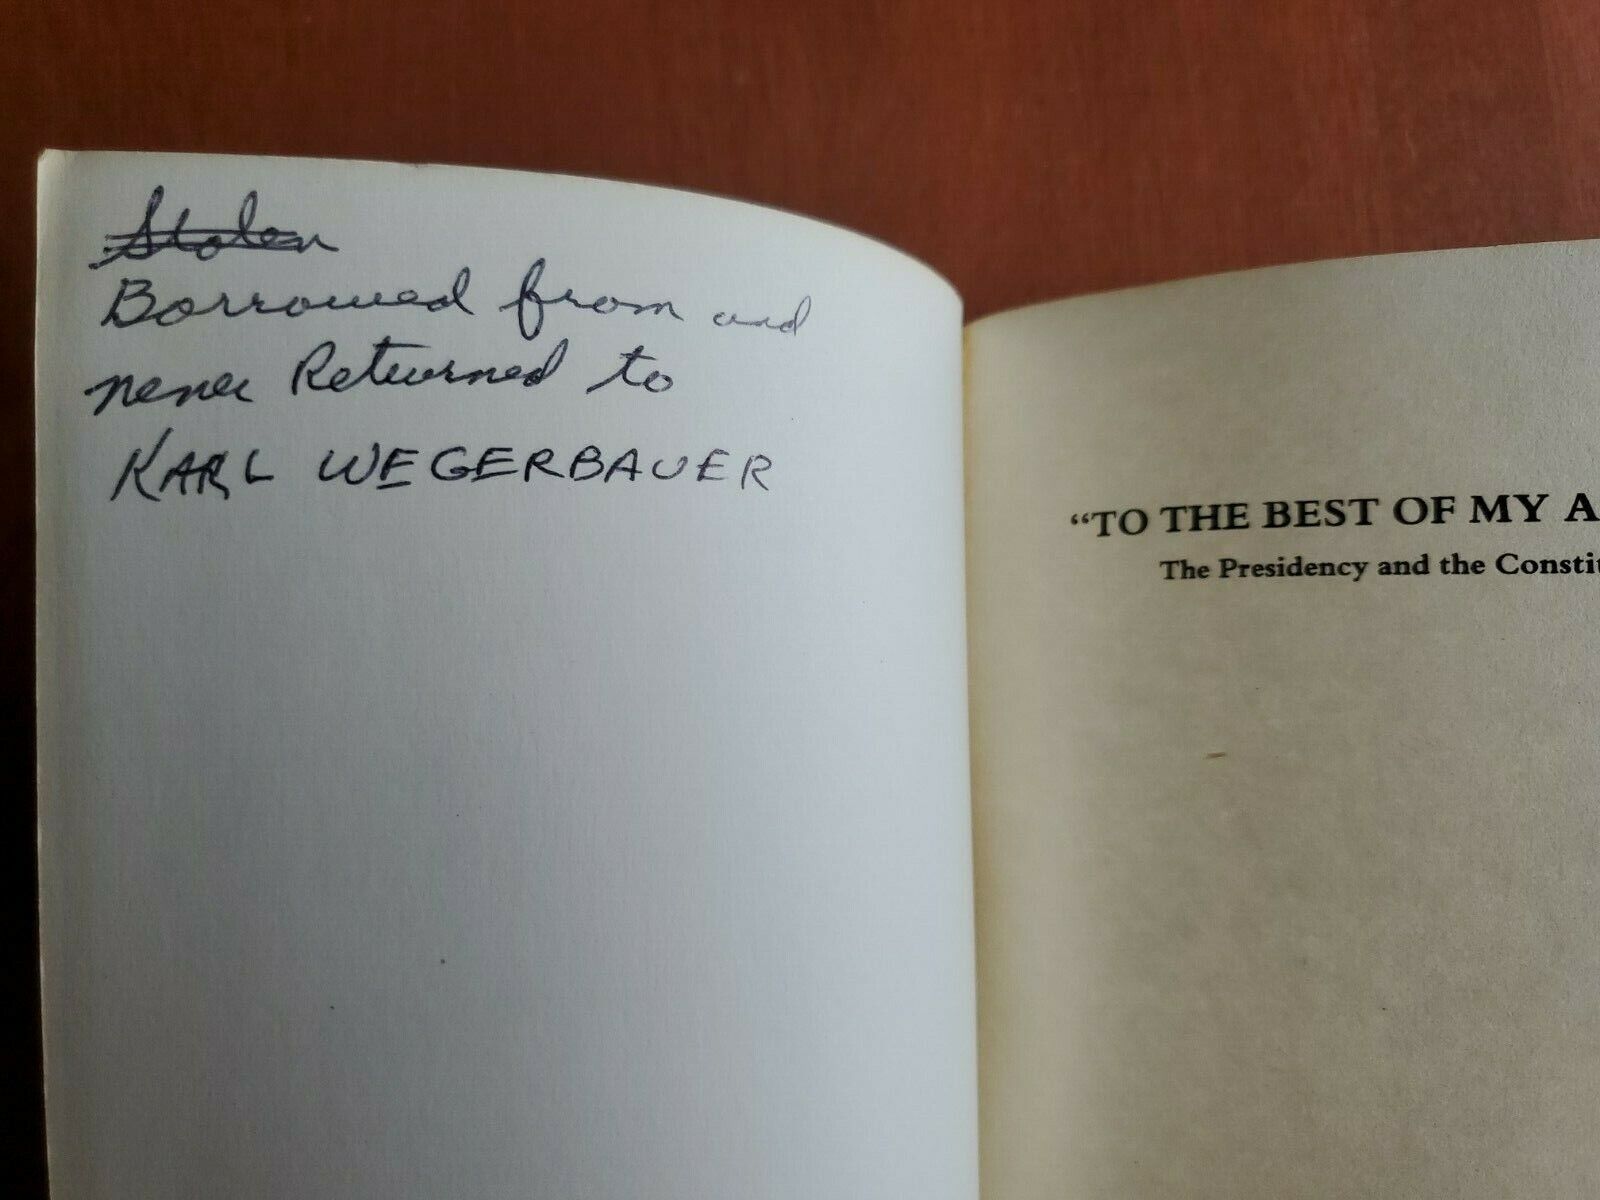 Stolen
Borrowed from and
never Returned to
KARL WEGERBAUER
"TO THE BEST OF MY A
The Presidency and the Constit